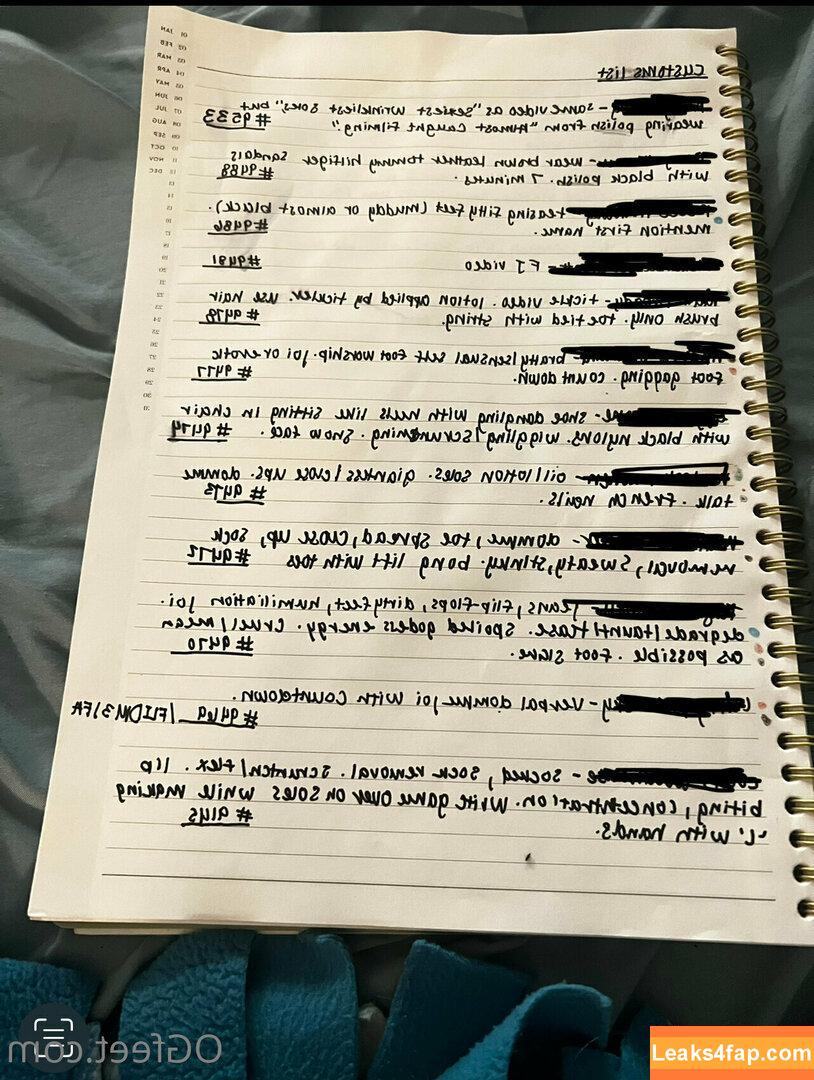 JAN
FEB
MAR
APR
MAY
JUN
JUL
AUG
SEP
OCT
NOV
DEC
CUSTOMS LIST
- same video as "sexiest wrinkliest soles", but
wearing polish from "Almost caught filming".
#9533
- wear brown leather tommy hilfiger sandals
with black polish. 7 minutes.
#9488
teasing filthy feet (muddy or almost black).
mention first name.
#9486
- FJ video
#9481
- tickle video. lotion applied by tickler. use hair
brush only. toe tied with string.
#9478
- bratty/sensual self foot worship. joi or erotic
foot gagging. count down.
#9477
- shoe dangling with heels like sitting in chair
with black nylons. wiggling/scrunching. show face.
#9474
- oil/lotion soles. giantess/close ups. domme
talk. french nails.
#9473
- domme, toe spread, close up, sock
removal, sweaty, stinky. bong lift with toes
#9472
- jeans, flip-flops, dirty feet, humiliation joi.
degrade/taunt/tease. Spoiled godess energy. cruel/mean
as possible. foot slave.
#9470
- verbal domme joi with countdown.
#9469 /FLIDM3/FA
- socked, sock removal. scrunch/flex. lip
biting, concentration. write game over on soles while making
'L' with hands.
#9145
OGfeet.com
Leaks4fap.com